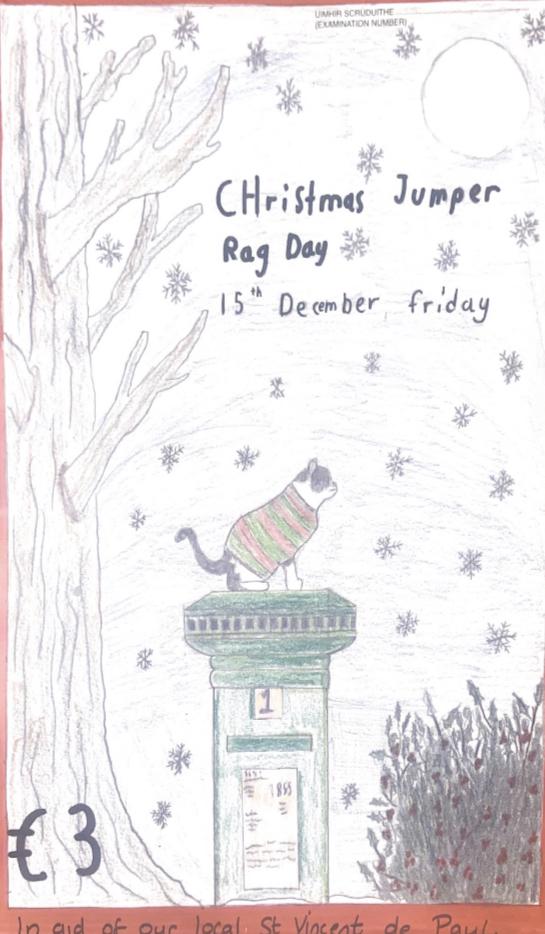 UIMHIR SCRÚDUITHE
(EXAMINATION NUMBER)
CHristmas Jumper
Rag Day
15th December, friday
1
1855
€3
In aid of our local St Vincent de Paul.